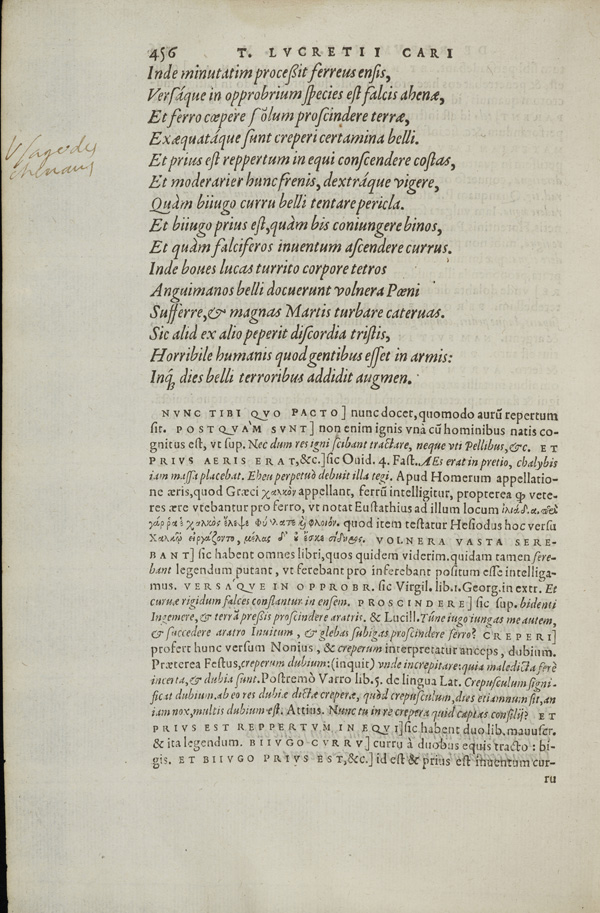 456 T. LVCRETII CARI
Inde minutatim proceßit ferreus ensis,
Versáque in opprobrium species est falcis ahenæ,
Et ferro cœpere sólum proscindere terræ,
Exæquatáque sunt creperi certamina belli.
Et prius est reppertum in equi conscendere costas,
Et moderarier hunc frenis, dextráque vigere,
Quàm biiugo curru belli tentare pericla.
Et biiugo prius est, quàm bis coniungere binos,
Et quàm falciferos inuentum ascendere currus.
Inde boues lucas turrito corpore tetros
Anguimanos belli docuerunt volnera Pœni
Sufferre, & magnas Martis turbare cateruas.
Sic alid ex alio peperit discordia tristis,
Horribile humanis quod gentibus esset in armis:
Inq́; dies belli terroribus addidit augmen.
NVNC TIBI QVO PACTO] nunc docet, quomodo aurũ repertum
sit. POSTQVAM SVNT] non enim ignis vnà cũ hominibus natis co-
gnitus est, vt sup. Nec dum res igni scibant tractare, neque vti Pellibus, &c. ET
PRIVS AERIS ERAT, &c.] sic Ouid. 4. Fast. AEs erat in pretio, chalybis
iam massa placebat. Eheu perpetuò debuit illa tegi. Apud Homerum appellatio-
ne æris, quod Græci χαλκὸν appellant, ferrũ intelligitur, propterea ꝙ vete-
res ære vtebantur pro ferro, vt notat Eustathius ad illum locum ἰλιάδ. α.
γάρ ῥα ἑ χαλκὸς ἔλεψε φύλλατε ϗ φλοιόν. quod item testatur Hesiodus hoc versu
Χαλκῷ εἰργάζοντο, μέλας δ' ὐκ ἔσκε σίδηρος. VOLNERA VASTA SERE-
BANT] sic habent omnes libri, quos quidem viderim. quidam tamen fere-
bant legendum putant, vt ferebant pro inferebant positum esse intelliga-
mus. VERSA'QVE IN OPPROBR. sic Virgil. lib. 1. Georg. in extr. Et
curuæ rigidum falces conflantur in ensem. PROSCINDERE] sic sup. bidenti
Ingemere, & terrã preßis proscindere aratris. & Lucill. Túne iugo iungas me autem,
& succedere aratro Inuitum, & glebas subigas proscindere ferro? CREPERI]
profert hunc versum Nonius, & creperum interpretatur anceps, dubium.
Præterea Festus, creperum dubium: (inquit) vnde increpitare: quia maledicta ferè
incerta, & dubia sunt. Postremò Varro lib. 5. de lingua Lat. Crepusculum signi-
ficat dubium. ab eo res dubiæ dictæ creperæ, quòd crepusculum, dies etiamnum sit, an
iam nox, multis dubium est. Attius. Nunc tu in re crepera quid captas consilij? ET
PRIVS EST REPPERTVM IN EQVI] sic habent duo lib. manuscr.
& ita legendum. BIIVGO CVRRV] curru à duobus equis tracto: bi-
gis. ET BIIVGO PRIVS EST, &c.] id est & prius est inuentum cur-
ru